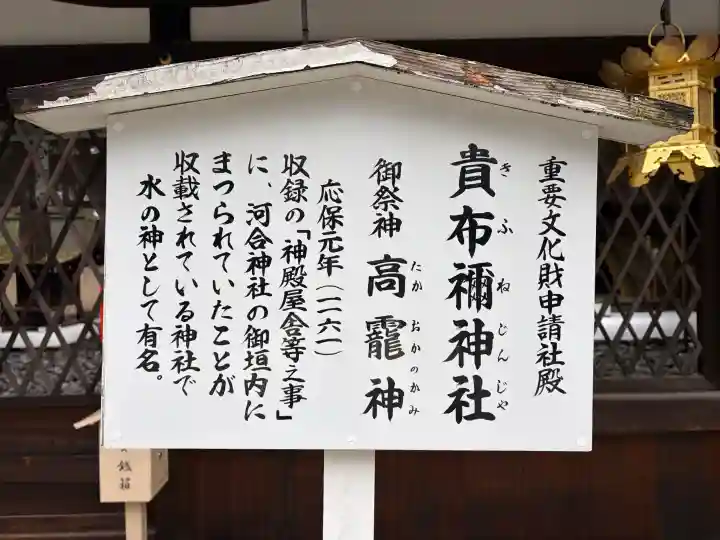 重要文化財申請社殿
貴布禰神社
きふねじんじゃ
御祭神 高龗神
たかおかのかみ
応保元年（一一六一）
収録の「神殿屋舎等之事」
に、河合神社の御垣内に
まつられていたことが
収載されている神社で
水の神として有名。
銭箱